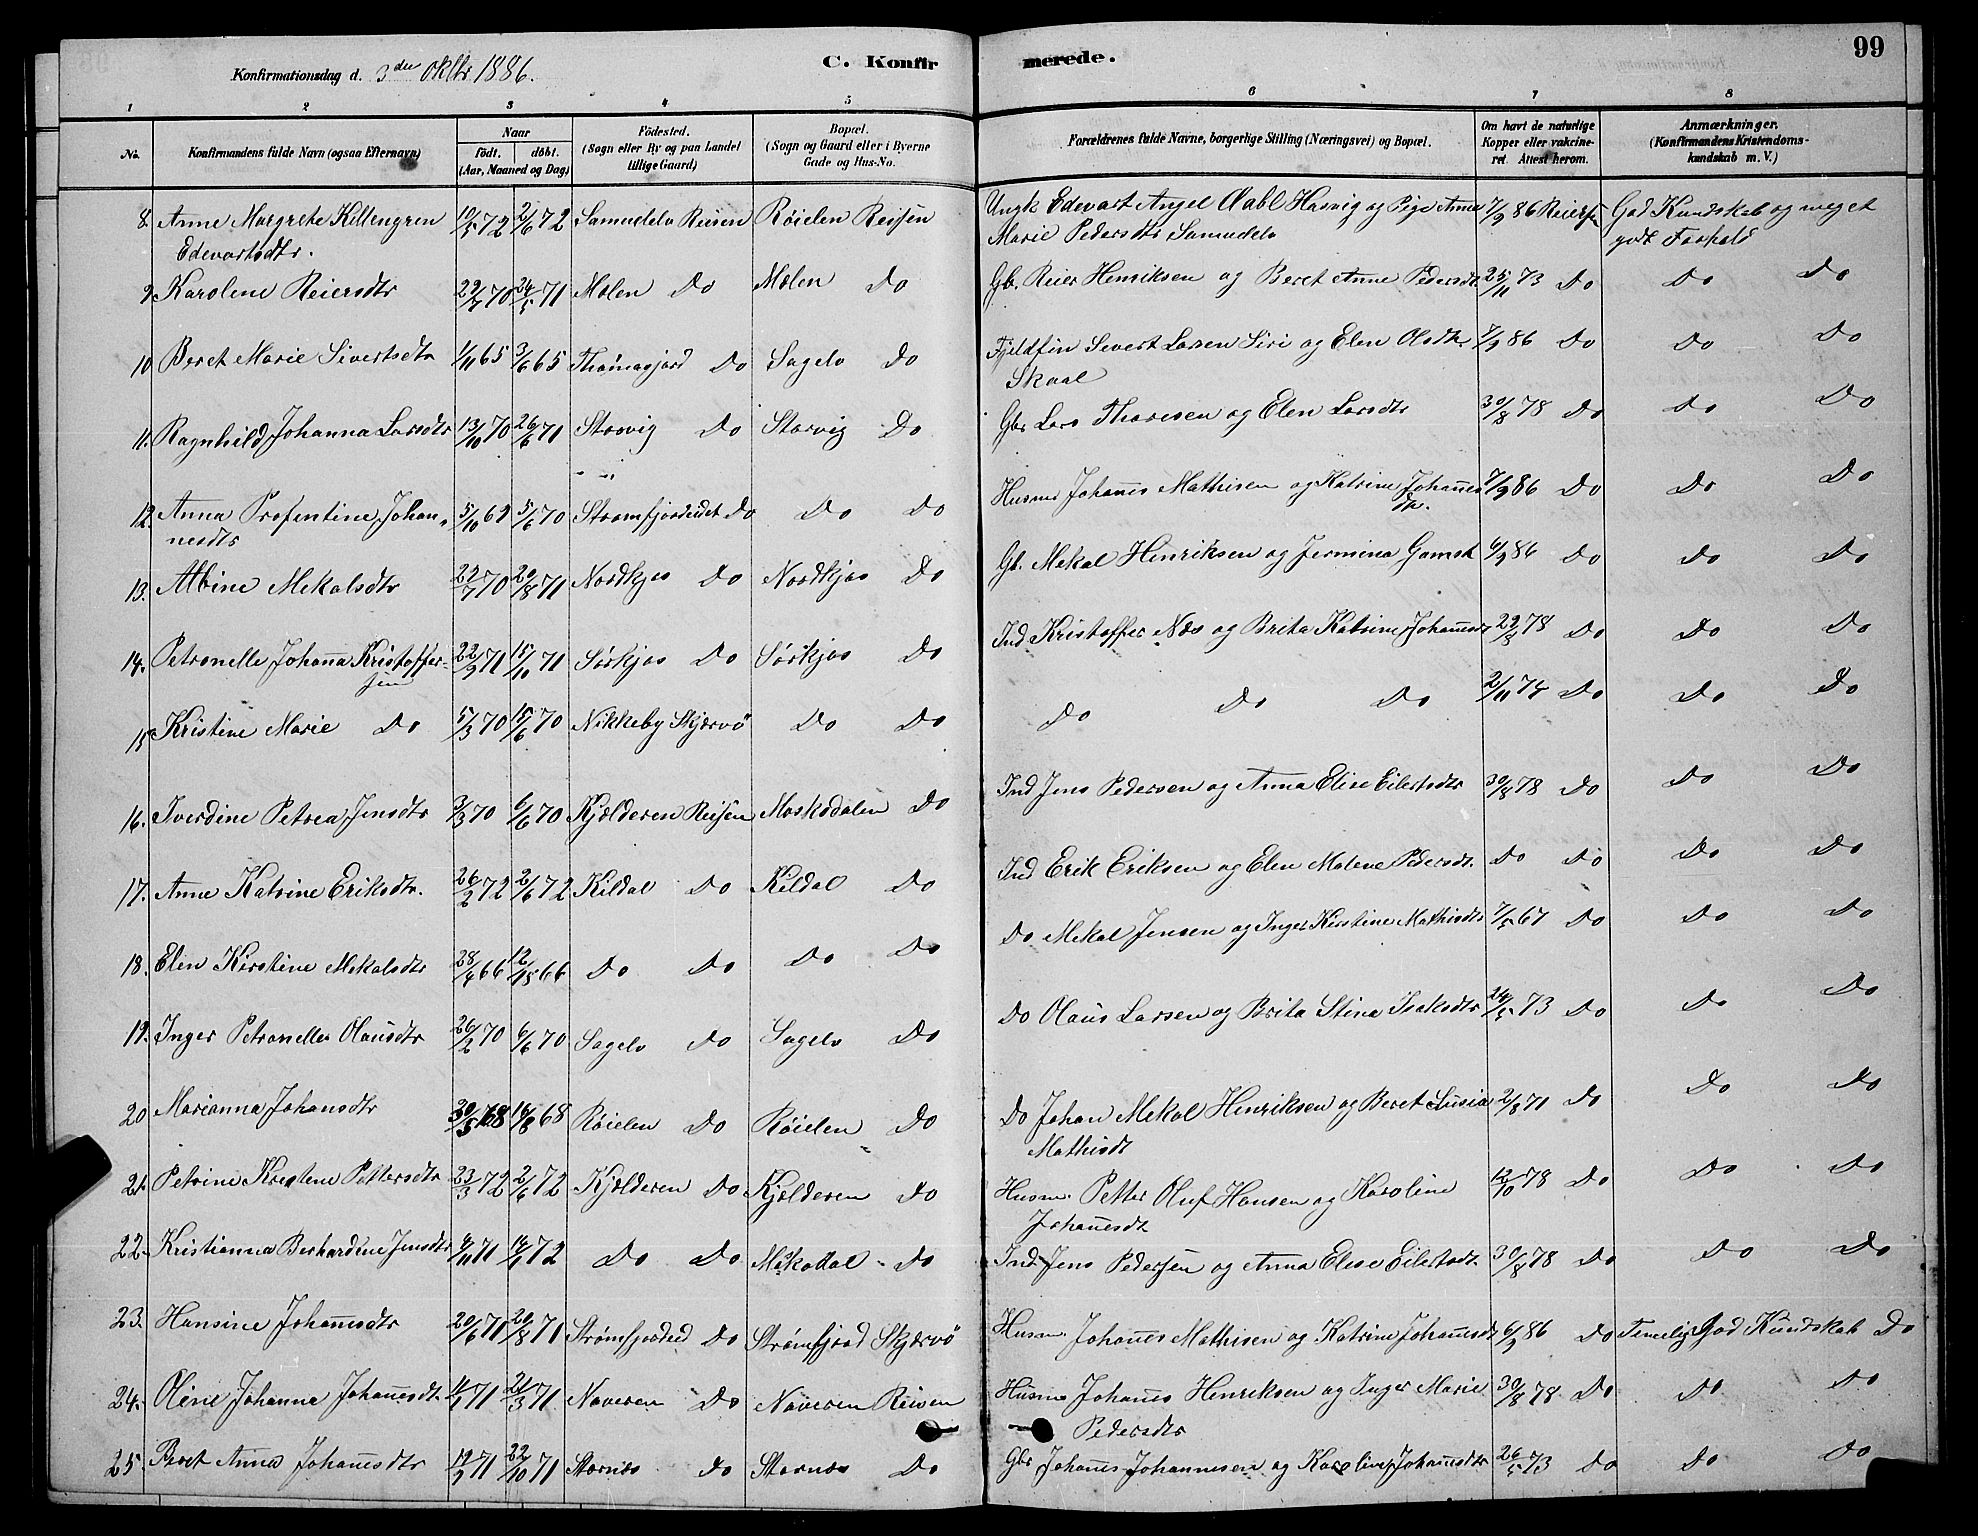 99
Konfirmationsdag d. 3die Oktbr 1886.
C. Konfirmerede.
1 2 3 4 5 6 7 8
No. Konfirmandens fulde Navn (ogsaa Efternavn) Naar født. døbt. (Aar, Maaned og Dag) Fødested. (Sogn eller By og paa Landet tillige Gaard) Bopæl. (Sogn og Gaard eller i Byerne Gade og Hus-No. Forældrenes fulde Navne, borgerlige Stilling (Næringsvei) og Bopæl. Om havt de naturlige Kopper eller vakcineret. Attest herom. Anmærkninger. (Konfirmandens Kristendomskundskab m. V.)
8. Anne Margrete Killengren 10/5 72 2/6 72 Samuelelv Reisen Røielen Reisen Ungk Edevart Angel Aabl Harvig og Pige Anne 7/9 86 God Kundskab og meget
Edevartsdtr. Marie Pedersdtr Samuelelv godt Forhold
9. Karolene Reiersdtr 29/7 70 24/5 71 Molen Do Molen Do Gb. Reier Henriksen og Beret Anne Pedersdt. 25/11 73 Do Do Do
10 Beret Marie Sivertsdtr 1/11 65 3/6 65 Thomasjord Do Sagelv Do Fjeldfin Sivert Larsen Siri og Elen Olsdtr. 7/9 86 Do Do Do
Skaal
11. Ragnhild Johanna Larsdtr 13/10 70 26/6 71 Storvig Do Storvig Do Gbr Lars Thoresen og Elen Larsdtr 30/8 78 Do Do Do
12. Anna Profentine Johan- 5/10 69 5/6 70 Strømfjordeidet Do Do Do Husm Johanes Mathisen og Katrine Johannes 7/9 86 Do Do Do
nesdtr dtr.
13. Albine Mekalsdtr 22/7 70 20/8 71 Nordkjos Do Nordkjos Do Gb. Mekal Henriksen og Jermina Gamst 6/9 86 Do Do Do
14. Petronelle Johanna Kristoffer- 22/9 71 15/10 71 Sørkjos Do Sørkjos Do Ind Kristoffer Næs og Brita Katrine Johannesd 29/8 78 Do Do Do
sen
15 Kristine Marie Do 5/3 70 15/6 70 Nikkeby Skjærvø Do Do Do Do Do 2/11 74 Do Do Do
16. Iverdine Petrea Jensdtr 3/3 70 6/6 70 Kjelderen Reisen Moskodalen Do Ind Jens Pedersen og Anna Elise Eilertsdtr 30/8 78 Do Do Do
17. Anne Katrine Eriksdtr. 26/2 72 2/6 72 Kildal Do Kildal Do Ind Erik Eriksen og Elen Malene Pedersdt. Do Do Do Do
18. Elen Kirstine Mekalsdtr 28/4 66 12/8 66 Do Do Do Do Do Mekal Jensen og Inger Kirstine Mathisdtr 7/5 67 Do Do Do
19. Inger Petronelle Olausdtr 26/2 70 6/6 70 Sagelv Do Sagelv Do Do Olaus Larsen og Brita Stina Isaksdtr 24/5 73 Do Do Do
20 Marianna Johansdtr 30/5 68 16/8 68 Røielen Do Røielen Do Do Johan Mekal Henriksen og Beret Susia 2/8 71 Do Do Do
Mathisdt
21. Petrine Kristene Pettersdtr 23/3 72 2/6 72 Kjelderen Do Kjelderen Do Husm. Petter Oluf Hansen og Karoline 12/10 78 Do Do Do
Johanesdt
22. Kristianna Berhardine Jensdtr 4/11 71 14/1 72 Do Do Moskodal Do Ind Jens Pedersen og Anna Elise Eilertsdt. 30/8 78 Do Do Do
23. Hansine Johanesdtr 20/6 71 20/8 71 Strømfjordeid Do Strømfjord Skjærvø Husm. Johanes Mathisen og Katrine Johanesdt 6/9 86 Do Temelig God Kundskab Do
24. Oline Johanna Johanesdt. 11/1 71 21/3 71 Naveren Do Naveren Reisen Husm Johanes Henriksen og Inger Marie 30/8 78 Do Do Do
Pedersdtr
25. Beret Anna Johanesdtr 19/9 71 22/10 71 Stornes Do Stornes Do Gbr Johanes Johannesen og Karoline Johanesdtr 26/5 73 Do Do Do